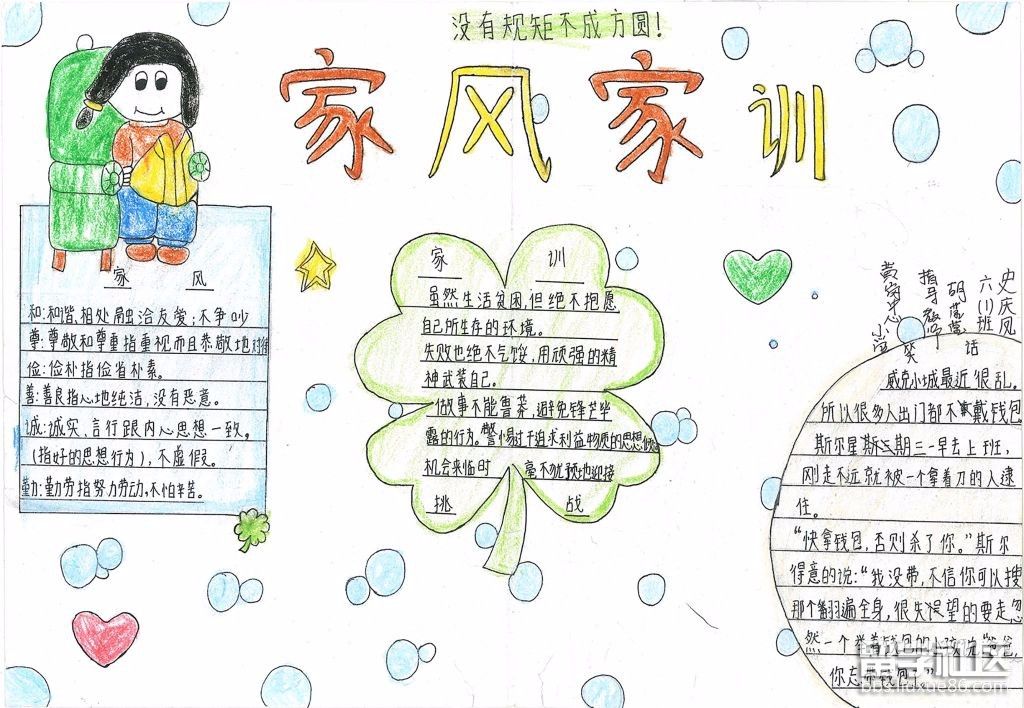 没有规矩不成方圆!
家风家训
家 风
和:和谐,相处融洽友爱;不争吵
尊:尊敬和尊重指重视而且恭敬地对待
俭:俭朴指俭省朴素。
善:善良指心地纯洁,没有恶意。
诚:诚实,言行跟内心思想一致。
(指好的思想行为),不虚假。
勤:勤劳指努力劳动,不怕辛苦。
家 训
虽然生活贫困,但绝不抱愿
自己所生存的环境。
失败也绝不气馁,用顽强的精
神武装自己。
做事不能鲁莽,避免锋芒毕
露的行为。警惕过于追求利益物质的思想
机会来临时 毫不犹预地迎接
挑 战
史庆凤
六(1)班
指导教师
黄岗中心小学
笑 话
威克小城最近很乱。
所以很多人出门都不戴钱包
斯尔星期三一早去上班,
刚走不远就被一个拿着刀的人逮
住。
“快拿钱包,否则杀了你。”斯尔
得意的说:“我没带,不信你可以搜
那个翻遍全身,很失望的要走忽
然一个举着钱包的小孩
你忘带钱包
留学社区
bbs.liuxue86.com